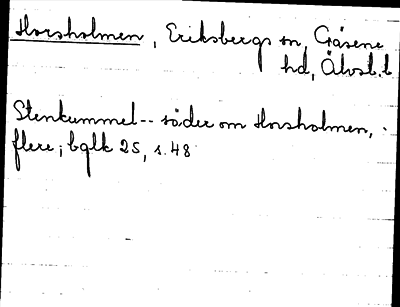 Horsholmen, Eriksbergs sn, Gäsene
hd, Älvsb. l
Stenkummel -- söder om Horsholmen,
flere; bglk 25, s. 48